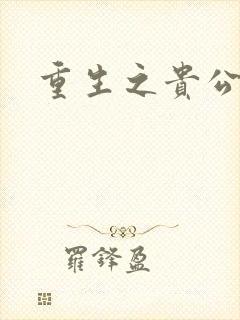 重生之貴公
羅鋒盈